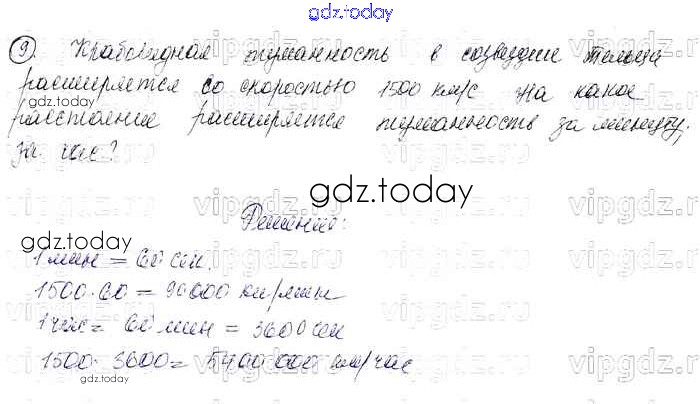 gdz.today
9. Крабовидная туманность в созвездии Тельца
расширяется со скоростью 1500 км/с на какое
gdz.today
расстояние расширяется туманность за минуту;
за час?
gdz.today
Решение:
gdz.today
1 мин = 60 сек.
1500·60 = 90000 км/мин
1 час = 60 мин = 3600 сек
1500·3600 = 5400000 км/час
gdz.today
vipgdz.ru